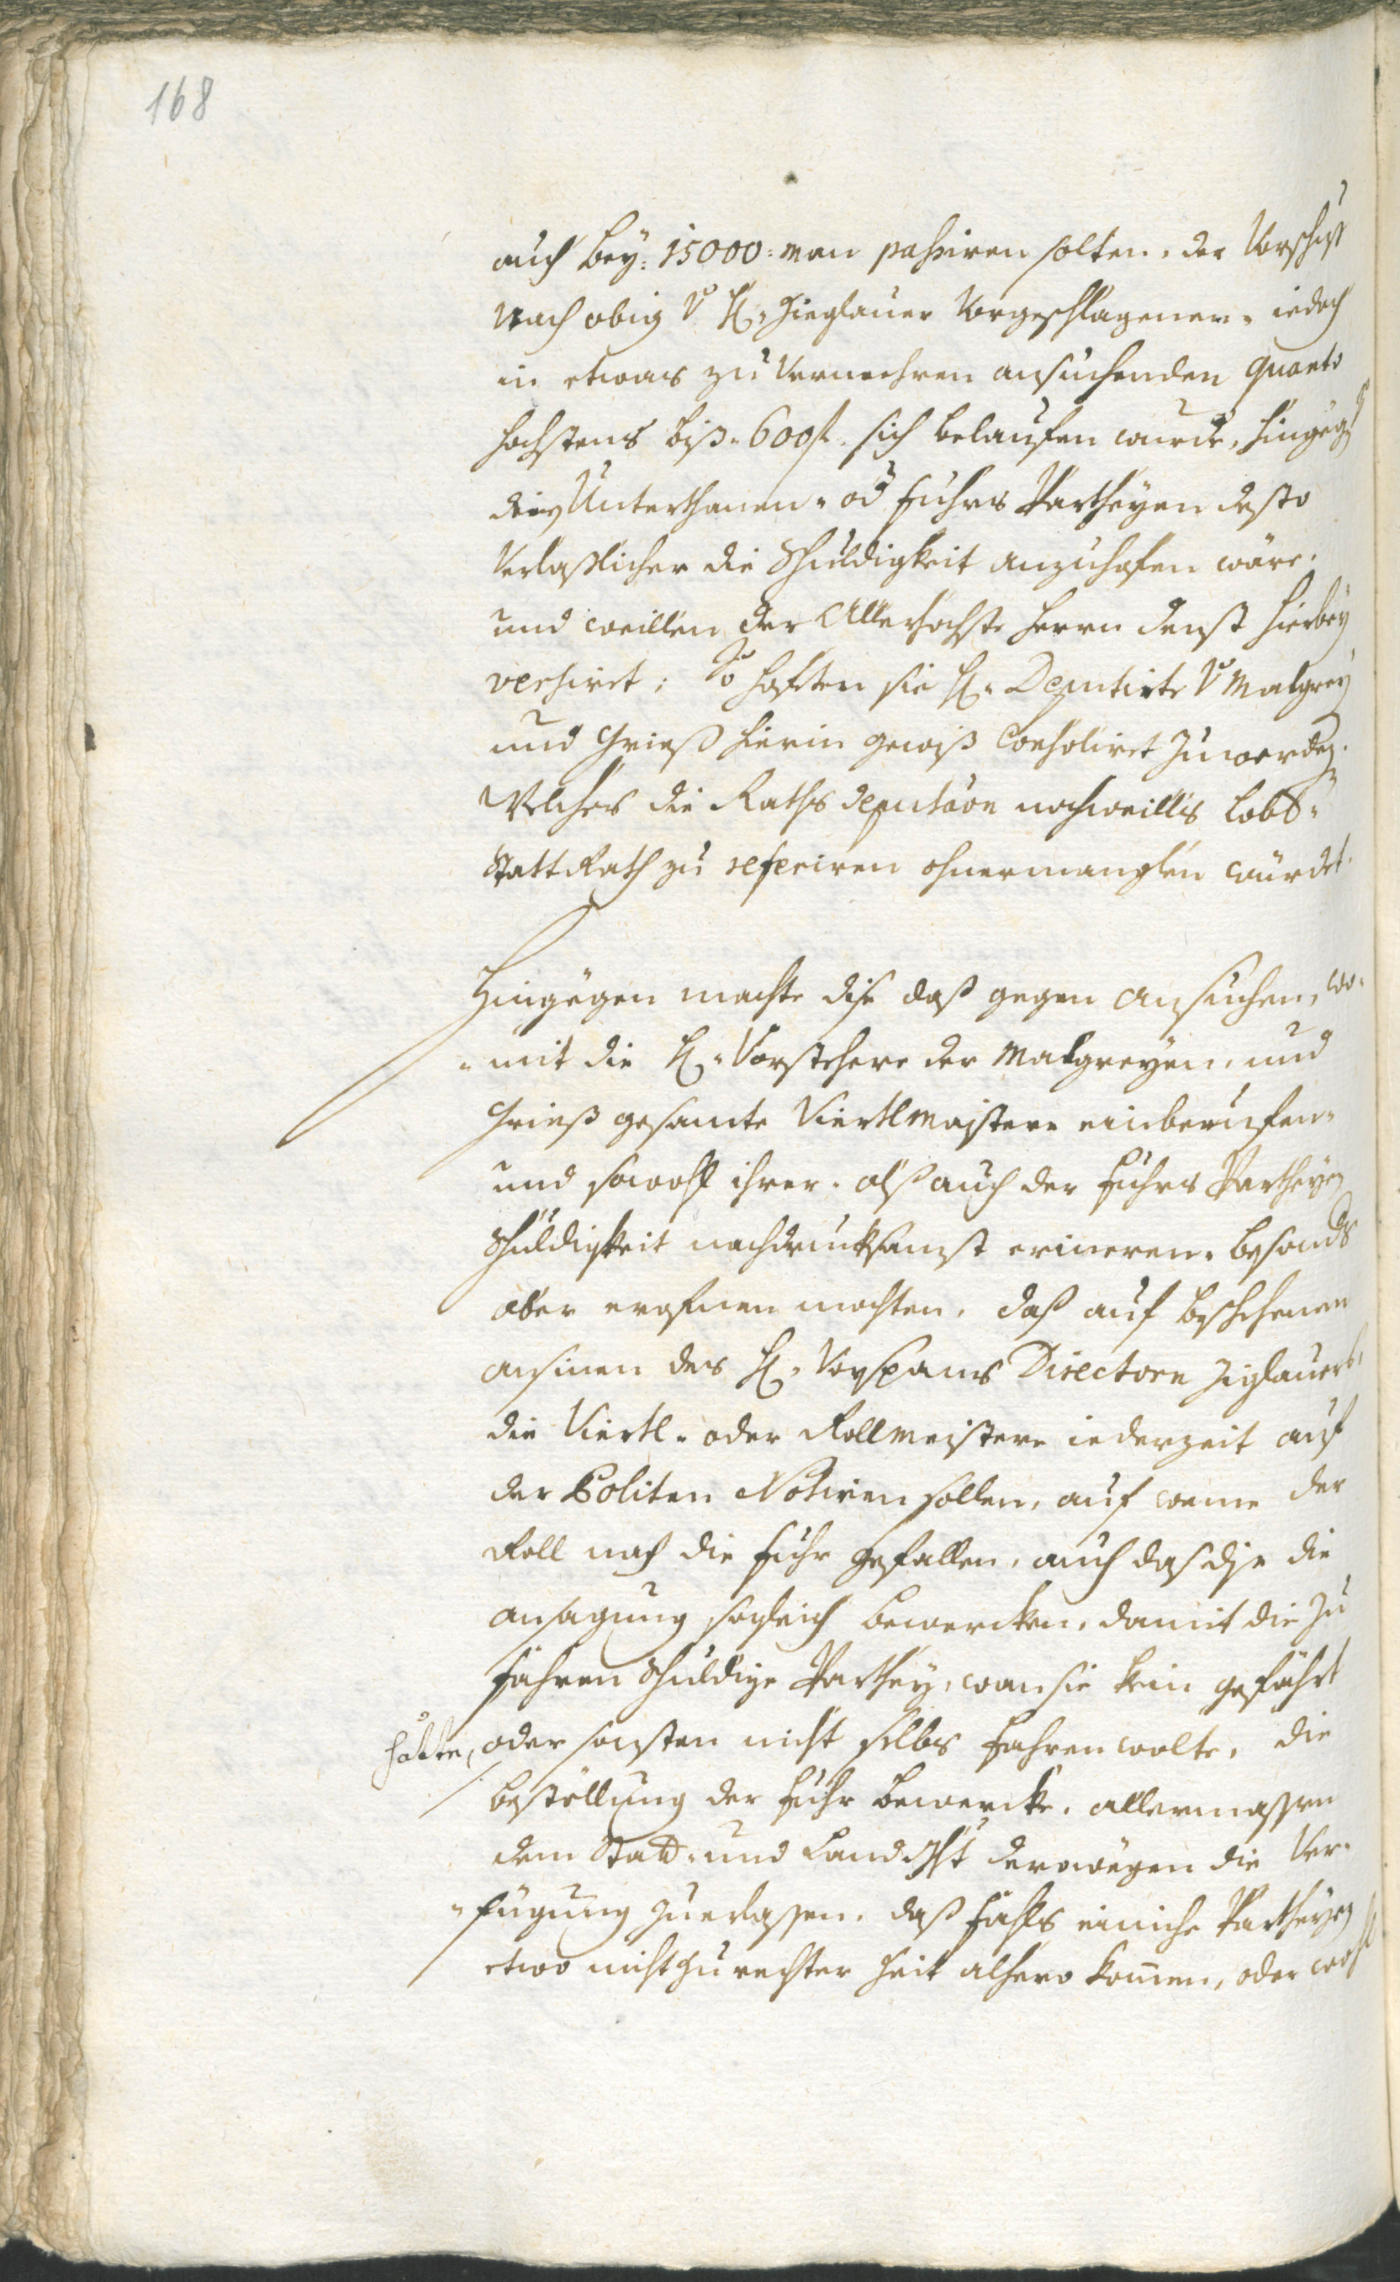 168
auch bey: 15000: man passiren solten, der Vorschuß
nach obig v H: Zieglauer Vorgeschlagenen, iedoch
in etwas zu vermehren ansuchenden quanto
hochstens biß 600 f. sich belaufen wurde, hingegen
den Unterthanen, od fuhrs Partheyen desto
verlaßlicher die Schuldigkeit anzuhofen wäre,
und weillen der Allerhochste herrn denst hierbey
versiret; So hoften sie H: Deputirte v Malgrey
und Grieß hierin gewiß Consoliret zu werden.
Welches die Raths deputaon nochweillis lobl:
Statt Rath zu referiren ohnermanglen würdet.
Hingegen machte dise das gegen ansuchen, wo-
-mit die H: Vorstehere der Malgreyen, und
Grieß gesamte Viertlmaister einberufen,
und sowohl ihrer, alß auch der fuhrs Partheyen
Schuldigkeit nachdruksamst erineren, besonds
aber erofnen mochten, daß auf beschehenen
ansinen des H: Vorspans Directorn Ziglauers,
die Viertl- oder Rollmeistere iederzeit auf
der Politen Notiren sollen, auf weme der
Roll nach die fuhr gefallen, auch das dise die
ansagung sogleich bewercken, damit die zu
fahren schuldige Parthey, wan sie kein gefährt
hätte, oder sonsten nicht selbs fahren wolte, die
bestöllung der fuhr bewercke, allermassen
dem Statt- und Landght derowegen die Ver-
-fügung zu erlassen, daß fahls einiche Partheyen
etwo nicht zu rechter Zeit alhero komen, oder wohl